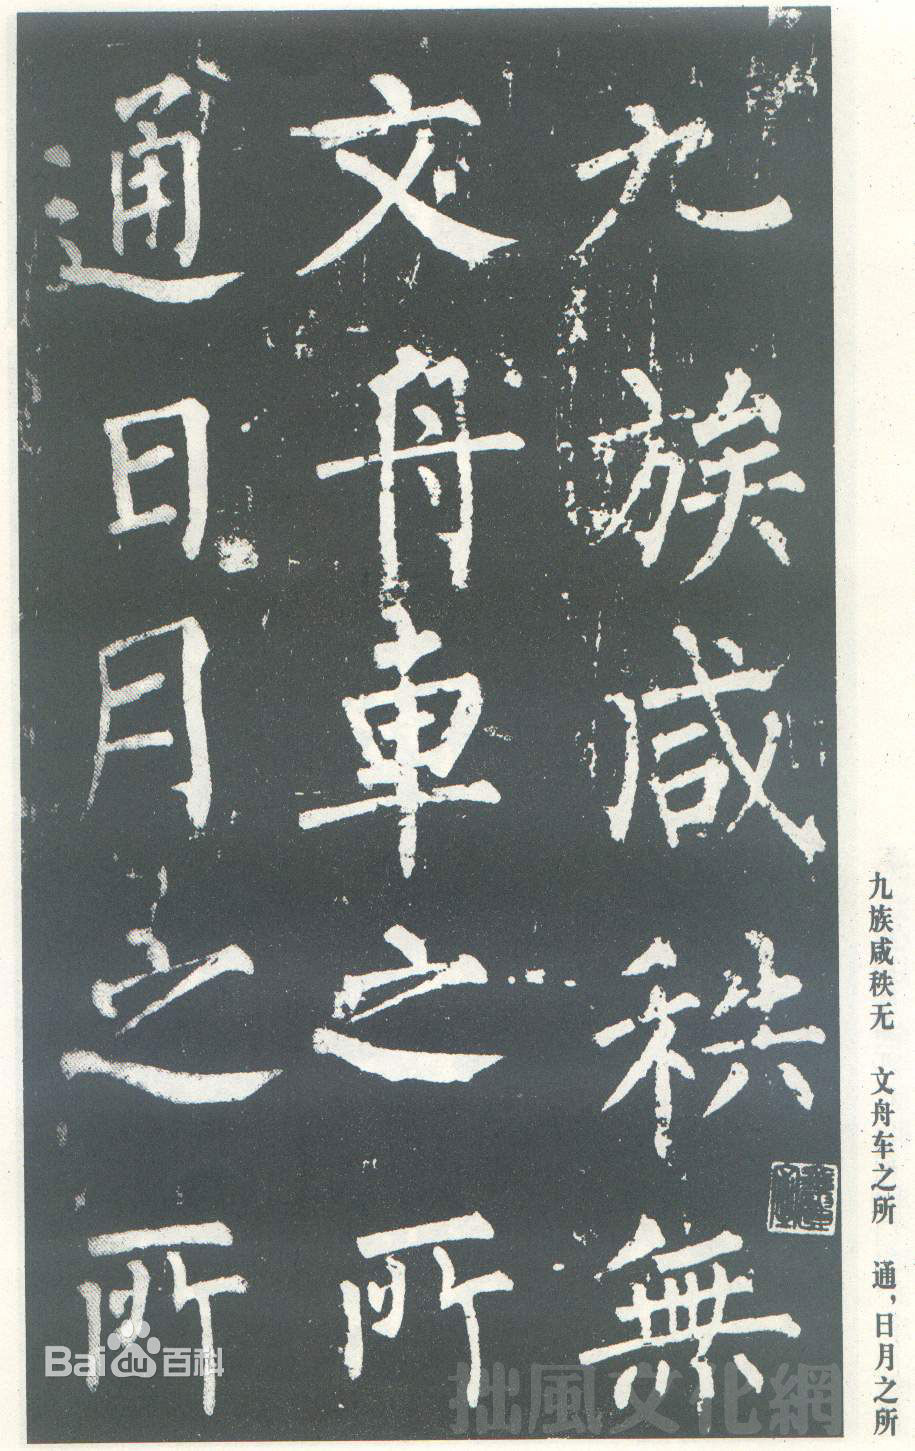 九族咸秩無
文舟車之所
通日月之所
九族咸秩无 文舟车之所 通，日月之所
Bai du 百科
拙風文化網